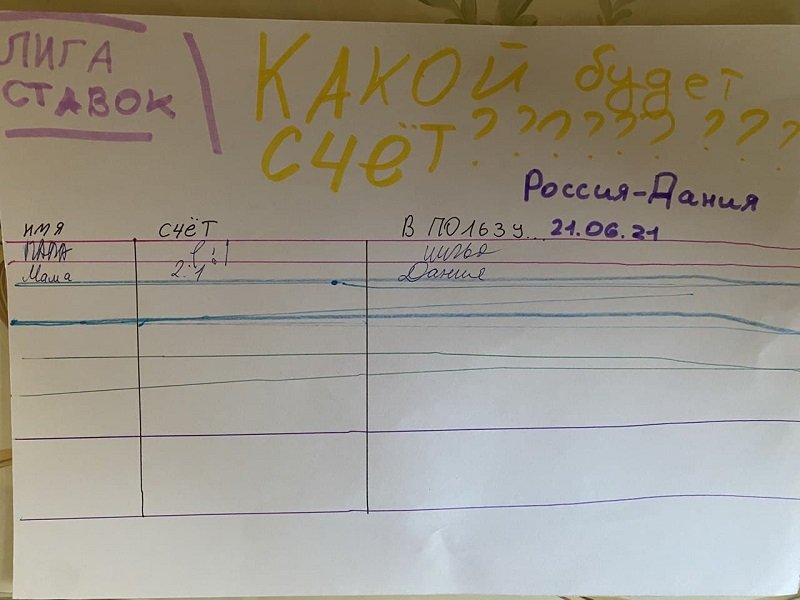 ЛИГА
СТАВОК
КАКОЙ будет
СЧЁТ??????????
Россия-Дания
ИМЯ СЧЁТ В ПОЛЬЗУ... 21.06.21
ПАПА 1:1 ничья
Мама 2:1 Дании